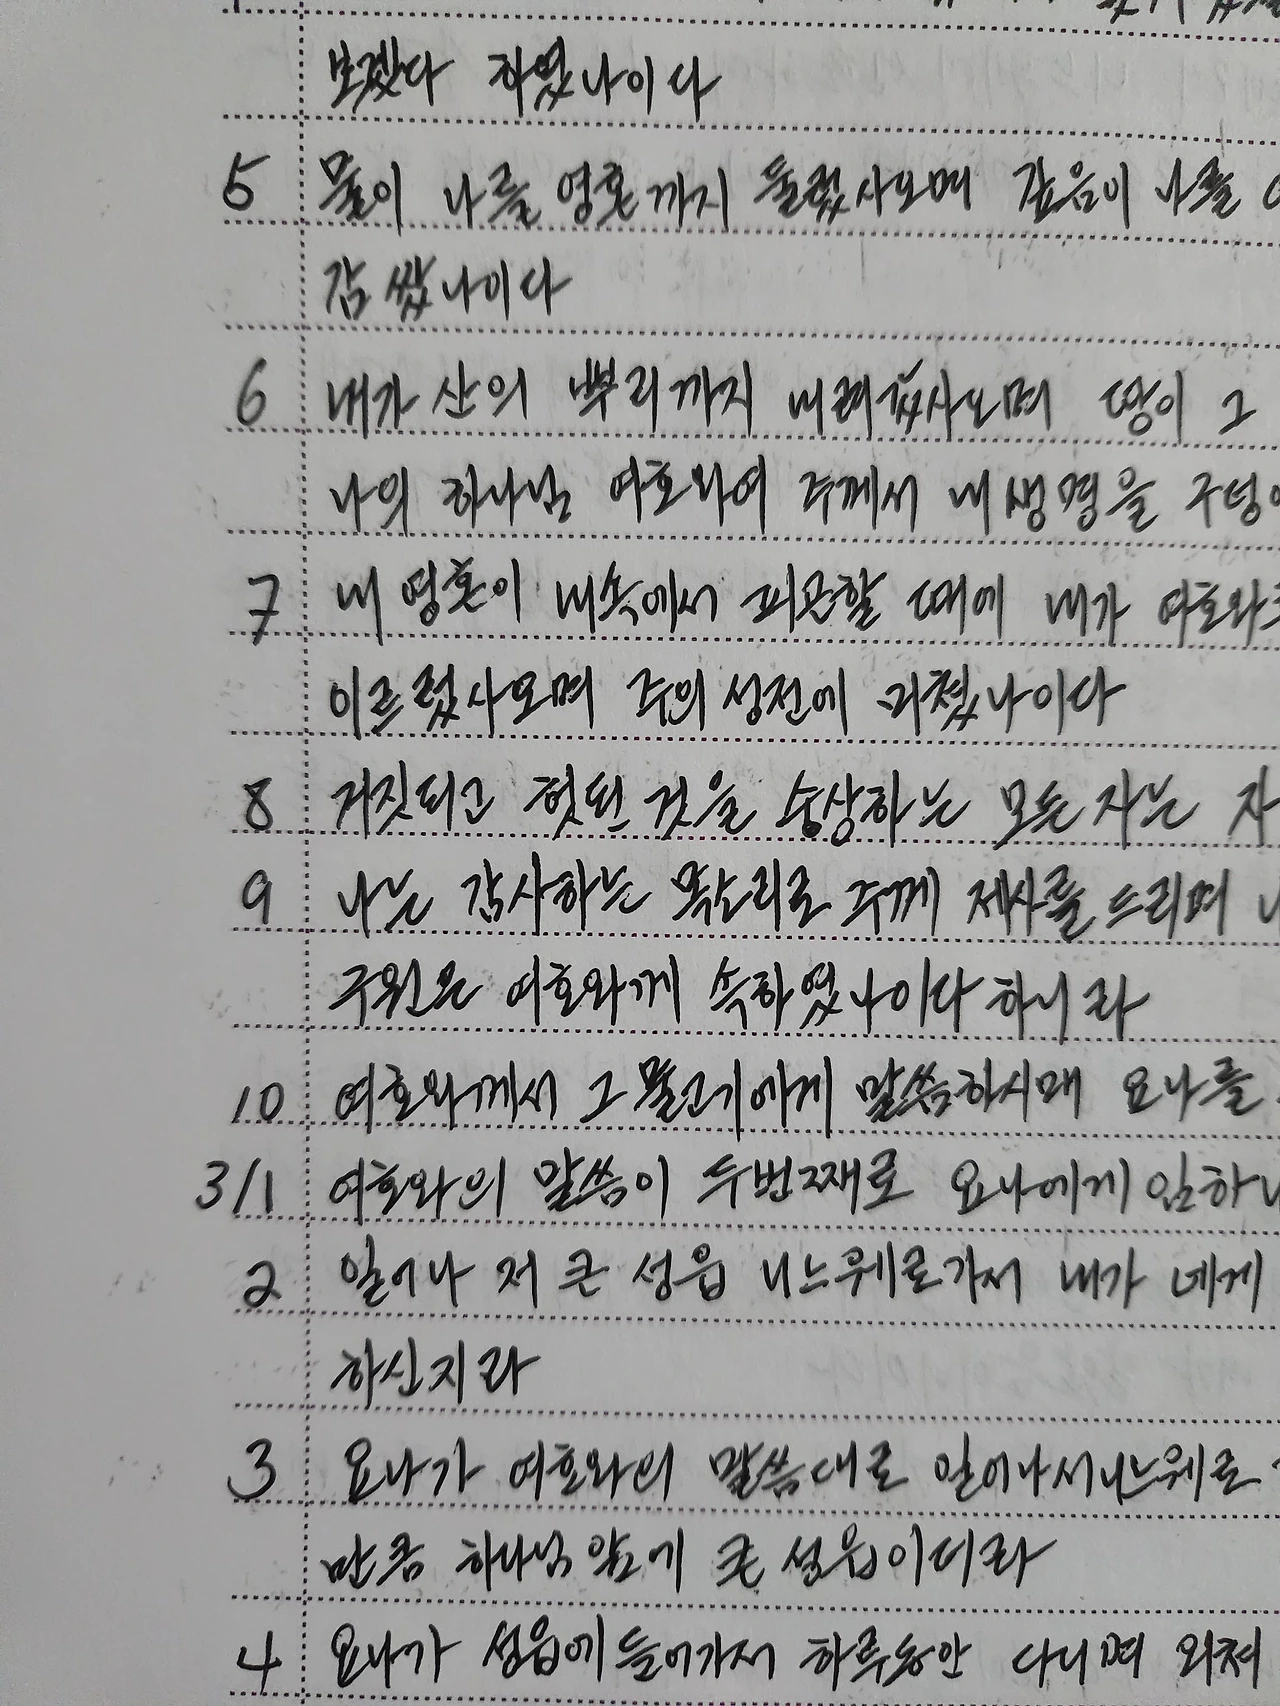 보겠다 하였나이다
5 물이 나를 영혼까지 둘렀사오며 깊음이 나를
감쌌나이다
6 내가 산의 뿌리까지 내려갔사오며 땅이 그
나의 하나님 여호와여 주께서 내 생명을 구덩이
7 내 영혼이 내속에서 피곤할 때에 내가 여호와를
이르렀사오며 주의 성전에 미쳤나이다
8 거짓되고 헛된 것을 숭상하는 모든 자는 자
9 나는 감사하는 목소리로 주께 제사를 드리며 나
구원은 여호와께 속하였나이다 하니라
10 여호와께서 그 물고기에게 말씀하시매 요나를
3/1 여호와의 말씀이 두번째로 요나에게 임하니
2 일어나 저 큰 성읍 니느웨로가서 내가 네게
하신지라
3 요나가 여호와의 말씀대로 일어나서니느웨로
만큼 하나님 앞에 큰 성읍이더라
4 요나가 성읍에 들어가서 하루동안 다니며 외쳐